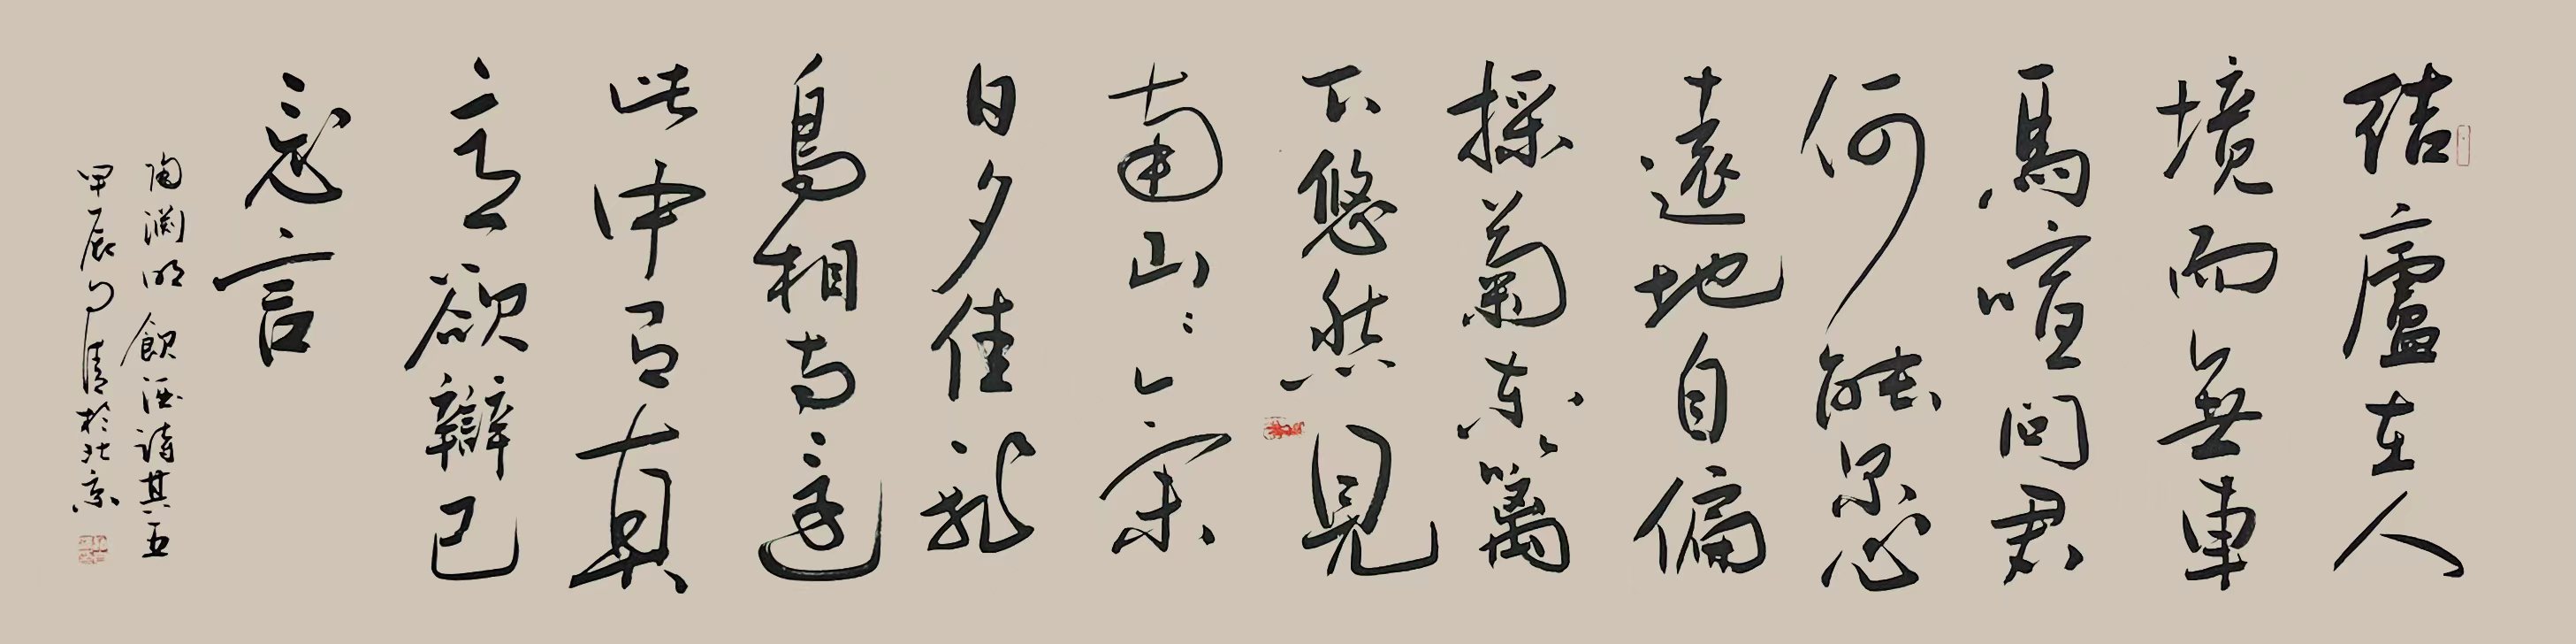 結廬在人
境而無車
馬喧問君
何能尔心
遠地自偏
採菊東籬
下悠然見
南山〻氣
日夕佳飛
鳥相与還
此中有真
意欲辯已
忘言
陶淵明飲酒詩其五
甲辰清於北京